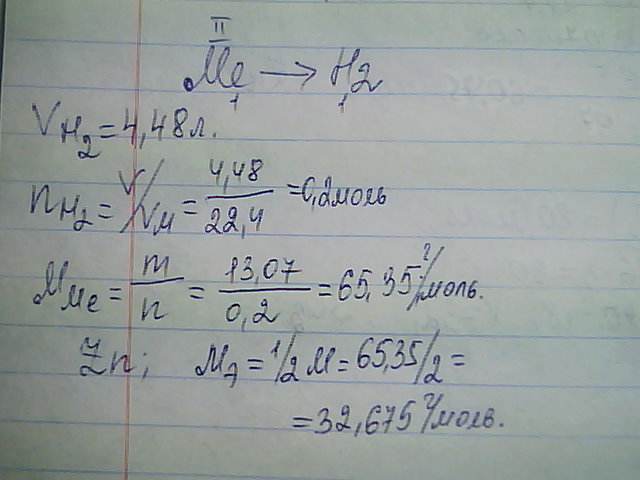 II
Me → H2
1 1
V H2 = 4,48 л.
n H2 = V/VM = 4,48/22,4 = 0,2 моль
M Me = m/n = 13,07/0,2 = 65,35 г/моль.
Zn; Mэ = 1/2 M = 65,35/2 =
= 32,675 г/моль.